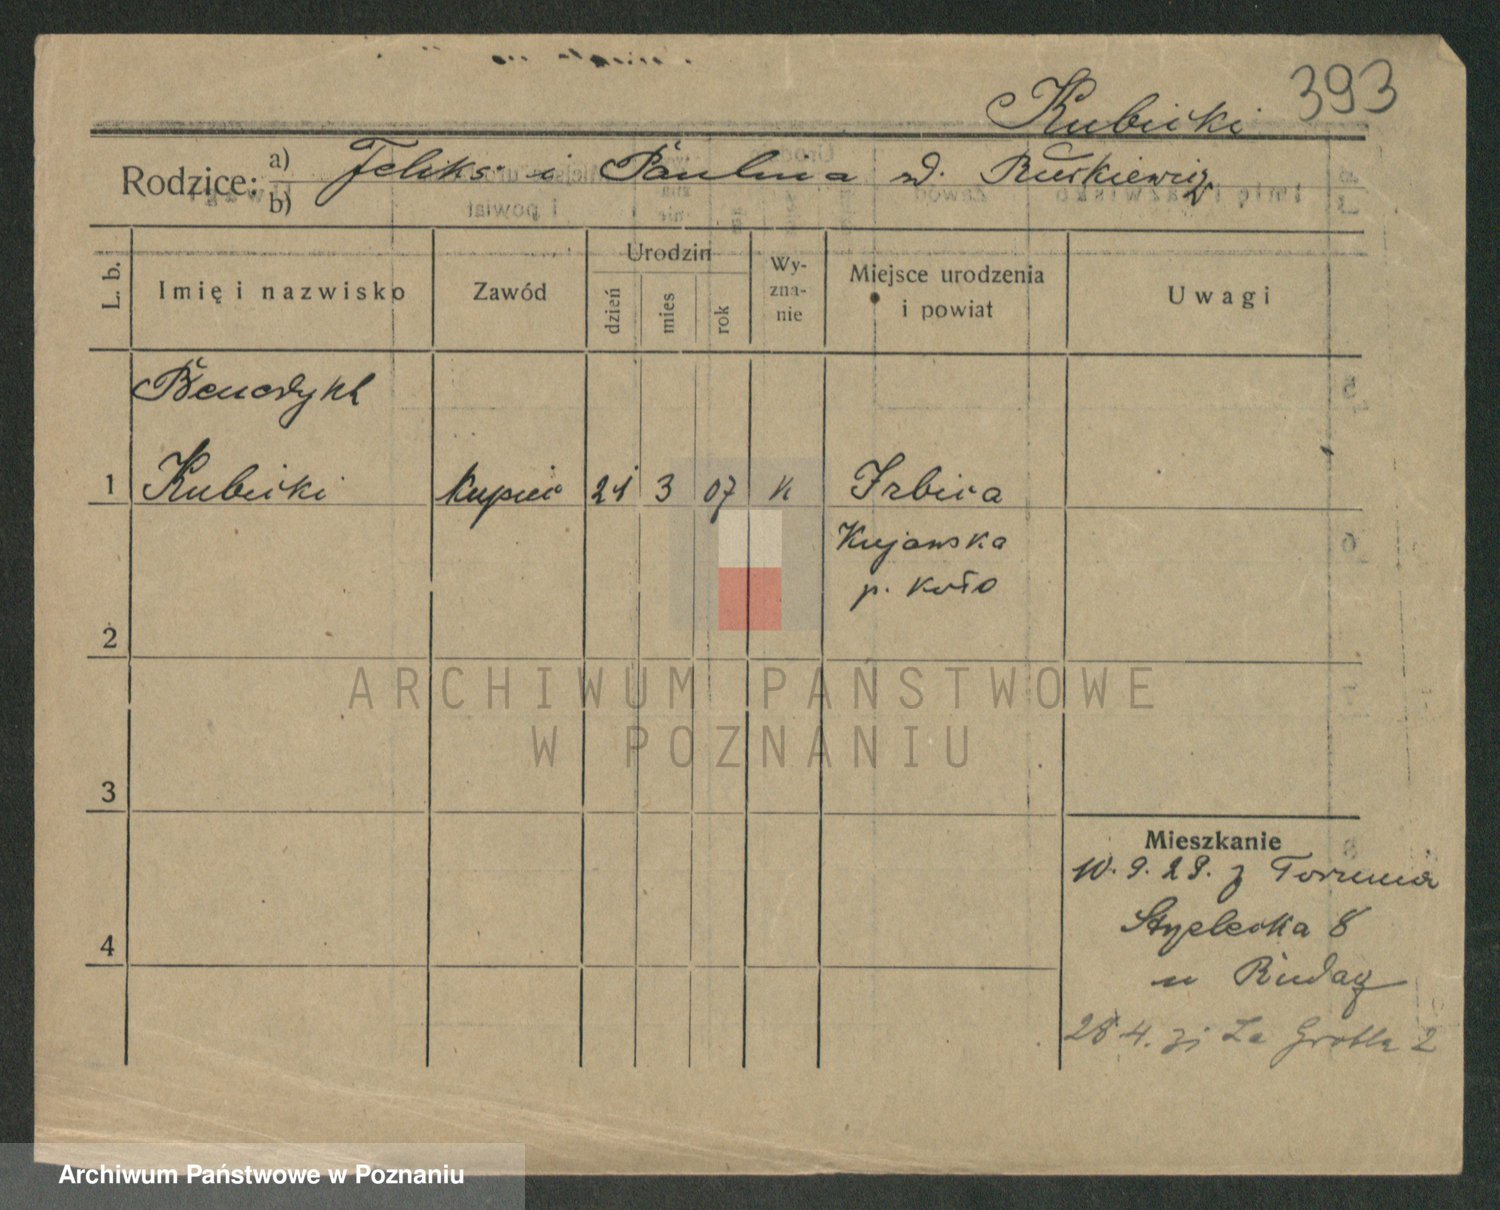 393
Kubicki
Rodzice: a) Feliks i Paulina d. Ruśkiewicz
b)
L. b.
Imię i nazwisko
Zawód
Urodzin
dzień
mies
rok
Wy-
zna-
nie
Miejsce urodzenia
i powiat
Uwagi
Benedykt
1 Kubicki kupiec 21 3 07 K Izbica
Kujawska
p. Koło
2
3
4
Mieszkanie
10.9.29. z Torunia
Strzelecka 8
u
28 4. Za Groblą 2
ARCHIWUM PAŃSTWOWE
W POZNANIU
Archiwum Państwowe w Poznaniu